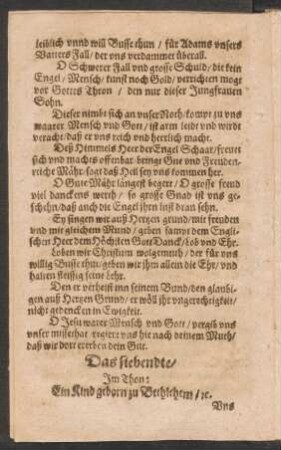 leiblich vnnd will Busse thun / für Adams vnsers
Vatters Fall / der vns verdammet überall.
O Schwerer Fall vnd grosse Schuld / die kein
Engel / Mensch / kunst noch Gold / verrichten mogt
vor Gottes Thron / den nur dieser Jungfrauen
Sohn.
Dieser nimbt sich an vnser Noth / kompt zu vns
waarer Mensch vnd Gott / ist arm leidt vnd wirdt
veracht / daß er vns reich vnd herrlich macht.
Deß Himmels Heer der Engel Schaar / frewet
sich vnd machts offenbar bringt Gut vnd Freuden,
reicht Mähr sagt daß Heil sey vns kommen her.
O Gute Mähr längest begert / O grosse freud
viel danckens werth / so grosse Gnad ist vns ge-
schehn / daß auch die Engel ihen lust dran sehn.
Ey singen wir auß Hertzen grund / mit freuden
vnd mit gleichem Mund / geben sampt dem Engli-
schen Heer dem Höchsten Gott Danck / Lob vnd Ehr.
Loben wir Christum wolgemuth / der für vns
willig Busse thut / geben wir ihm allein die Ehr / vnd
halten fleissig seine Lehr.
Den er verheist inn seinem Bund / den glaubi-
gen auß Hertzen Grund / er wöll ihr vngerechtigkeit /
nicht gedencken in Ewigkeit.
O Jesu warer Mensch vnd Gott / vergib vns
vnser missethat regiere vns hie nach deinem Muth /
daß wir dort ererben dein Gut.
Das siebendte /
Im Thon:
Ein Kind geborn zu Bethlehem / ⁊c.
Vns